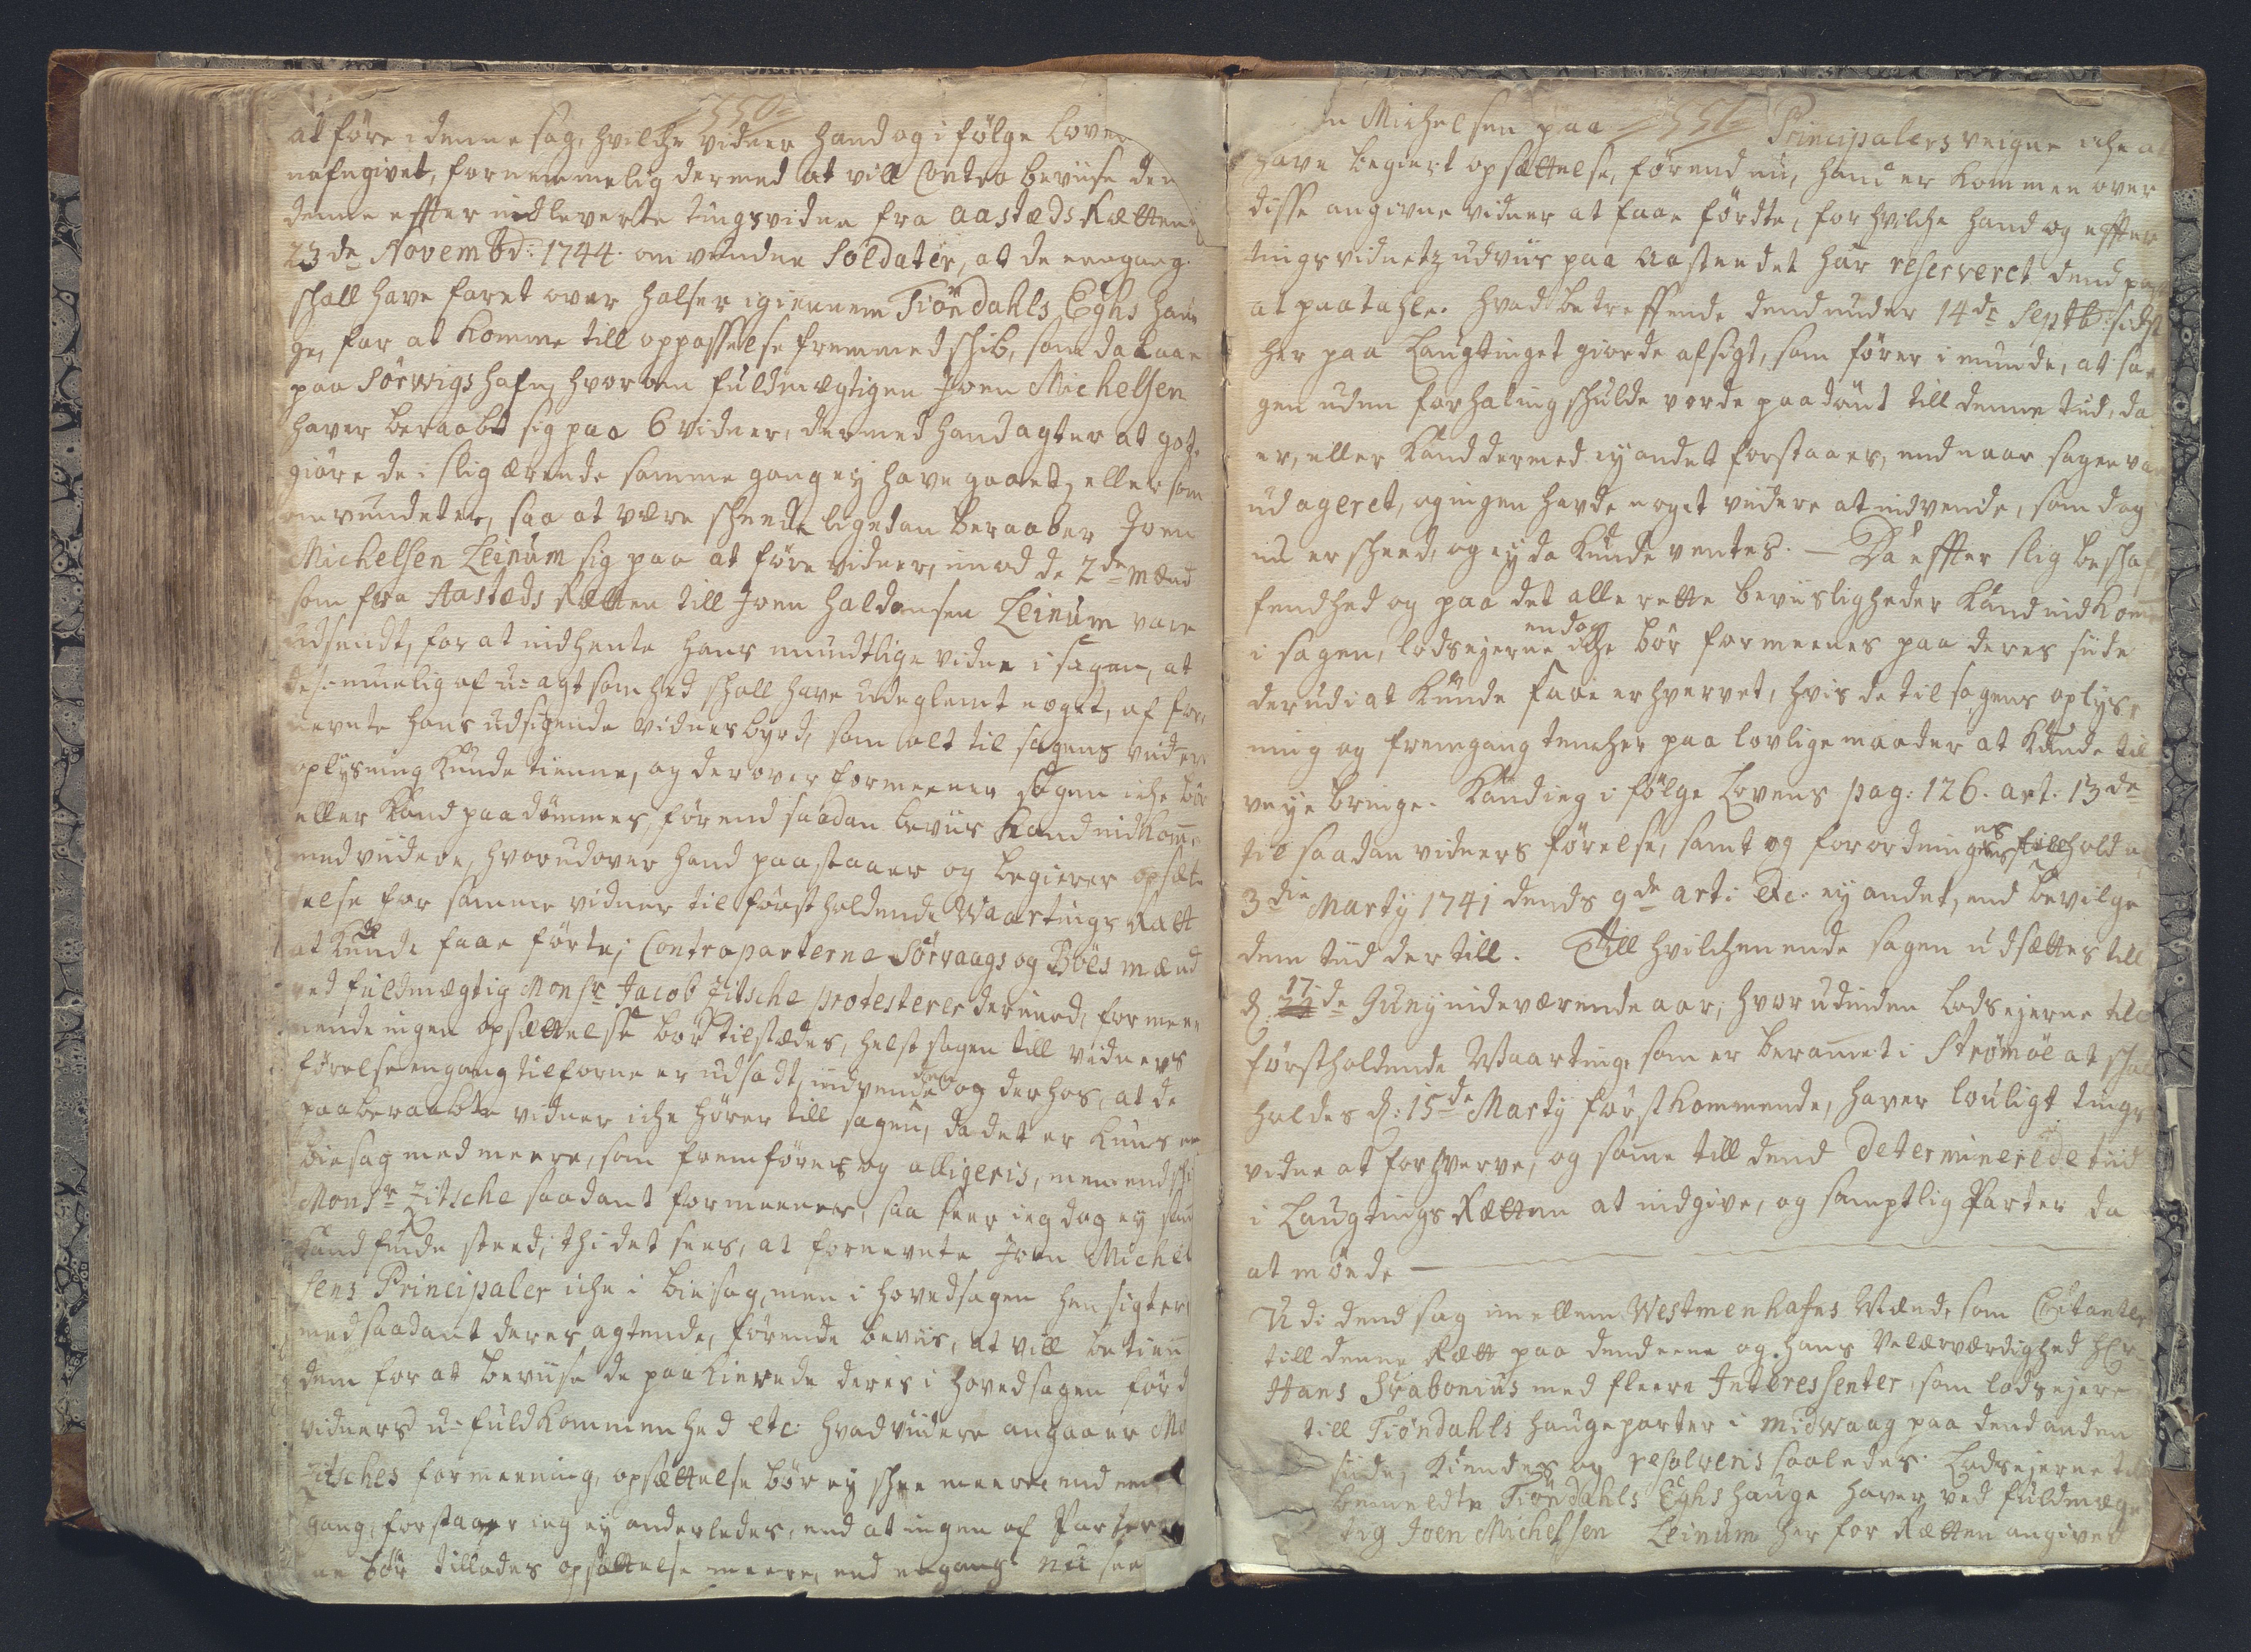 350
at føre i denne sag, hvilche vidner hand og i følge Loven
nafngivet, fornemmelig dermed at vill Contra beviise den
denne effter indleverte tingsvidne fra aasteds Rætten
23de Novembd: 1744. omvundne Soldater, at de eengang
schall have faret over halser igiennem Tiøndahls Eghs hau
ge, for at komme till oppasselse fremmed schib, som da laae
paa Sørwigs hafn, hvorom fuldmægtigen Joen Michelsen
haver beraabt sig paa 6 vidner, dermed hand agter at got
giøre de i slig ærende samme gang ey have gaaet, eller som
omvundet er, saa at være scheede ligedan beraaber Joen
Michelsen Leinum sig paa at føre vidner, imod de 2de mænd
som fra Aasteds Rætten till Joen Haldansen Leinum vare
udsendt, for at indhente hans mundtlige vidne i sagen, at
de muelig af u-agtsomhed schall have udeglemt noget, af for
nevnte hans udsigende vidnesbyrd, som alt til sagens viidere
oplysning kunde tienne, og derover formeener sagen iche bør
eller kand paadømmes, førend saadan beviis kand indkomme
med viidere, hvorudover hand paastaaer og begierer opsæt
telse for samme vidner til først holdende Waartings Rætt
at kunde faae førte; Contraparterne Sørvaags og Bøes mænd
ved fuldmægtig Monsr. Jacob Zitsche protesterer derimod, formee
nende ingen opsættelse bør tilstædes, helst sagen till vidners
førelse engang tilforne er udsadt, indvendende og derhos, at de
paaberaabte vidner iche hører till sagen, da det er kuns en
biesag med meere, som fremføres og alligeris, men endschi
Monsr. Zitsche saadant formeener, saa seer ieg dog ey saa
kand finde steed; thi det sees, at fornevnte Joen Michel
sens Principaler iche i biesag, men i hovedsagen hensigter
med saadant deres agtende, førende beviis, at vill betiene
dem for at beviise de paakierede deres i hovedsagen ført
vidners u-fuldkommenhed etc: hvad viidere angaaer Mo
Zitsches formeening, opsættelse bør ey schee meere end een
gang, forstaaer ieg ey anderledes, end at ingen af Parterne
ne bør tillades opsættelse meere, end engang. nu sees
351
Michelsen paa Principalers veigne iche at
have begiert opsættelse, førend nu, hand er kommen over
disse angivne vidner at faae førdte, for hvilche hand og effter
tingsvidnetz udviis paa Aastendet har reserveret dend post
at paatahle. hvad betreffende dend under 14de Septb: sidst
her paa Laugtinget giorde afsigt, som fører i munde, at sa
gen uden forhaling schulde vorde paadømt till denne tiid, da
er, eller kand dermed ey andet forstaaes, end naar sagen var
udageret, og ingen havde noget viidere at indvende, som dog
nu er scheed, og ey da kunde ventes. – Da effter slig beschaf
fendhed og paa det alle rette beviisligheder kand indkomme
i sagen, lodsejerne endog iche bør formeenes paa deres siide
derudi at kunde faae erhvervet, hvis de til sagens oplys
ning og fremgang tencher paa lovlige maader at kunde til
veye bringe. kand ieg i følge Lovens pag: 126. art: 13de
til saadan vidners førelse, samt og forordningens hold af
3die Marty 1741 dends 9de art: etc: ey andet, end bevilge
dem tiid dertill. Till hvilchen ende sagen udsættes till
d. 17de Juny indeværende aar; hvorudinden lodsejerne til
førstholdende Waarting, som er berammet i Strømøe at schal
holdes d: 15de Marty førstkommende, haver louligt tings
vidne at forhverve, og samme till dend determinerede tiid
i Laugtings Rætten at indgive, og samptlig Parter da
at møede
Udi dend sag imellem Westmenhafns Mænd, som Citanter
till denne Rætt paa dend eene og hans Velærværdighed Hr
Hans Srabonius med fleere Interessenter, som lodsejere
till Tiøndahls haugeparter i Midwaag paa dend anden
siide, kiendes og resolveris saaledes: Lodsejerne til
bemeldte Tiøndahls Eghs hauge haver ved fuldmæg
tig Joen Michelsen Leinum her for Rætten angivet